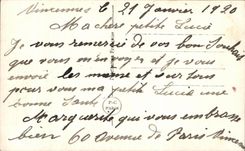 Vincennes le 21 Janvier 1920
Ma chère petite Lucie
Je vous remercie de vos bon Souhait
que vous m'envoyez et je vous
envoie les meme et sur tous
pour vous ma petite Lucie une
bonne Santé
Marguerite qui vous embrasse
bien 60 avenue de Paris Vincennes